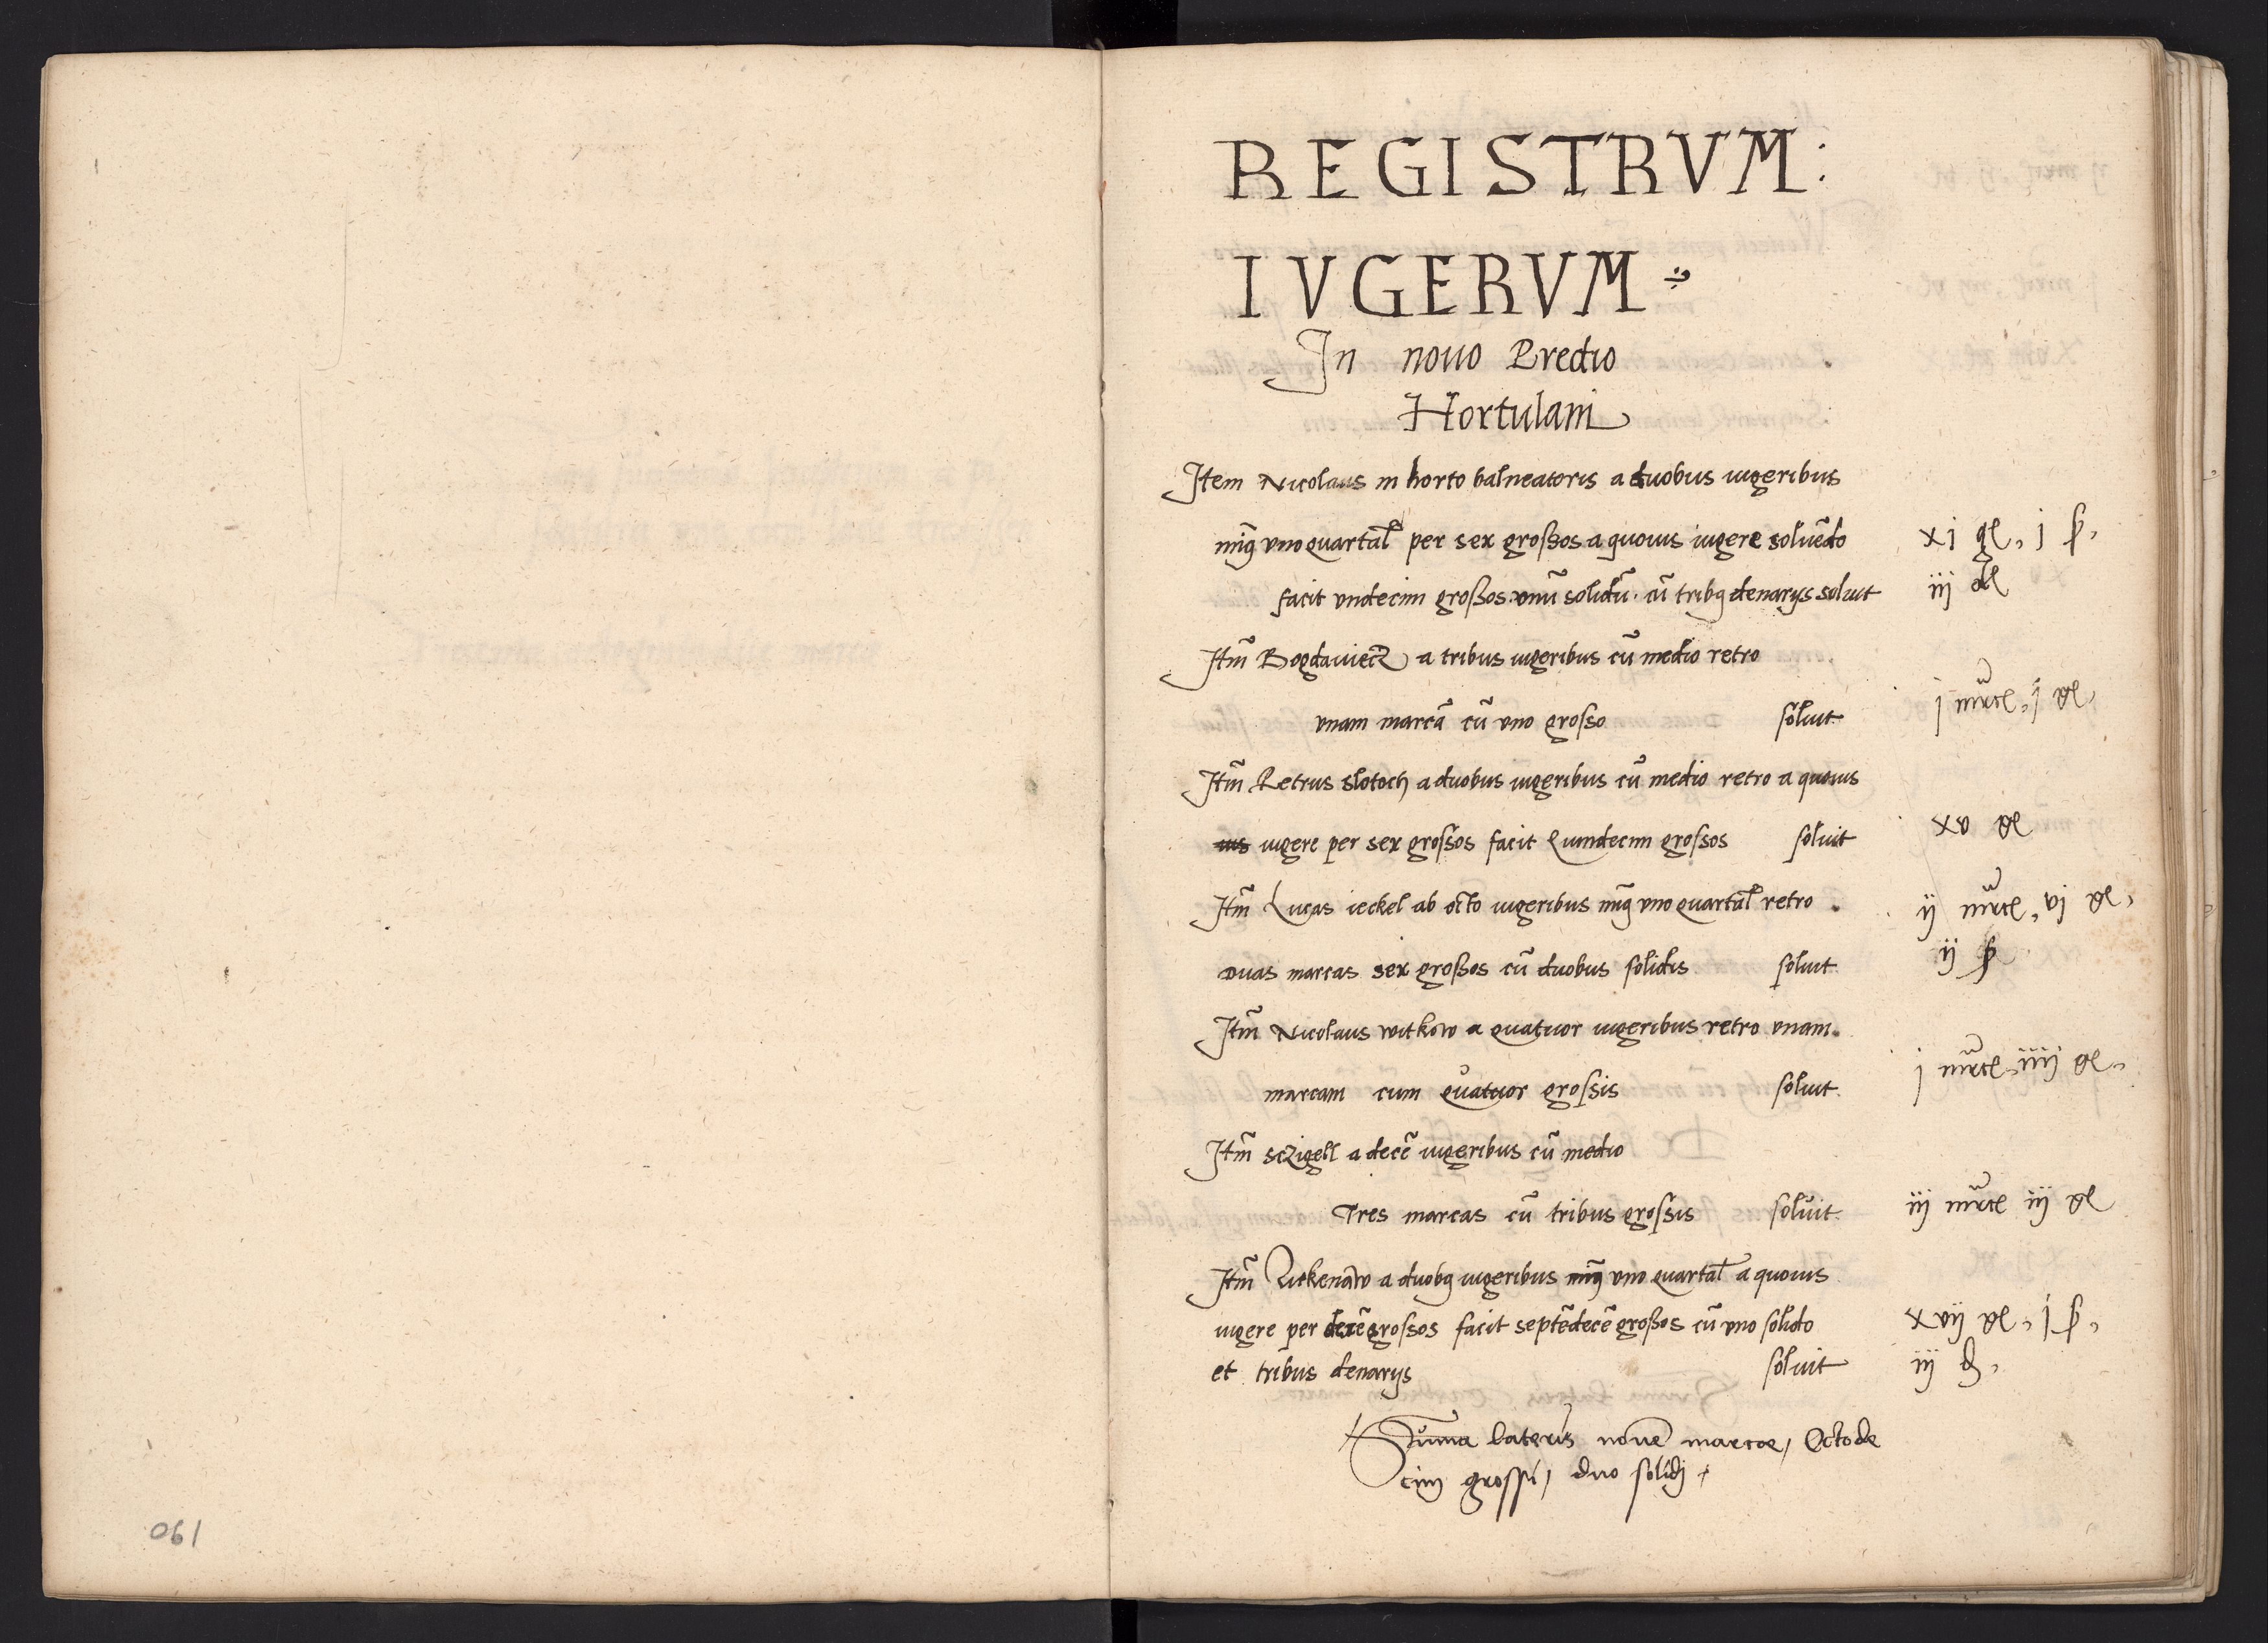 REGISTRVM:
IVGERVM
In nouo Predio
Hortulani
Item Nicolaus in horto balneatoris a duobus iugeribus
minq vno quartal per sex großos a quouis iugere soluẽdo
xj gl, j ß,
facit vndecim großos vnũ solidũ cũ tribq denarijs soluit
iij dl
Itm̃ Bogdaniecz a tribus iugeribus cũ medio retro
vnam marcã cũ vno grosso soluit
j mrcl, j gl,
Itm̃ Petrus slotoch a duobus iugeribus cũ medio retro a quouis
iugere per sex grossos facit Quindecim grossos soluit
xv gl
Itm̃ Lucas ieckel ab octo iugeribus minq vno quartal retro
ij mrcl, vj gl,
duas marcas sex großos cũ duobus solidis soluit
ij ß
Itm̃ Nicolaus witkow a quatuor iugeribus retro vnam
marcam cum quatuor grossis soluit
j mrcl iiij gl,
Itm̃ sczigell a decẽ iugeribus cũ medio
Tres marcas cũ tribus grossis soluit
iij mrcl iij gl
Itm̃ a duobq iugeribus minq vno quartal a quouis
iugere per decẽ grossos facit septẽdecẽ großos cũ vno solido
xvij gl, j ß,
et tribus denarijs soluit
iij d,
Summa lateris nouẽ marcae, Octode
cim grossi, duo solidj
190